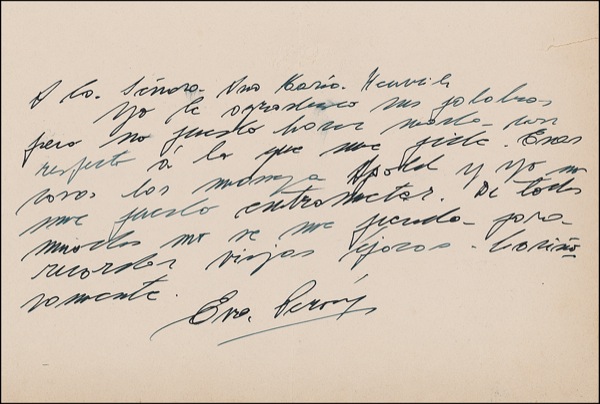 A la. Señora. Ana María. Heurich
Yo le agradesco sus palabras
pero no puedo hacer nada con
respecto a lo que me pide. Esas
cosas las maneja Apold y yo no
me puedo entrometer. De todos
modos no se me pierda para
recordar viejas épocas. Cariño
samente.
Eva. Perón